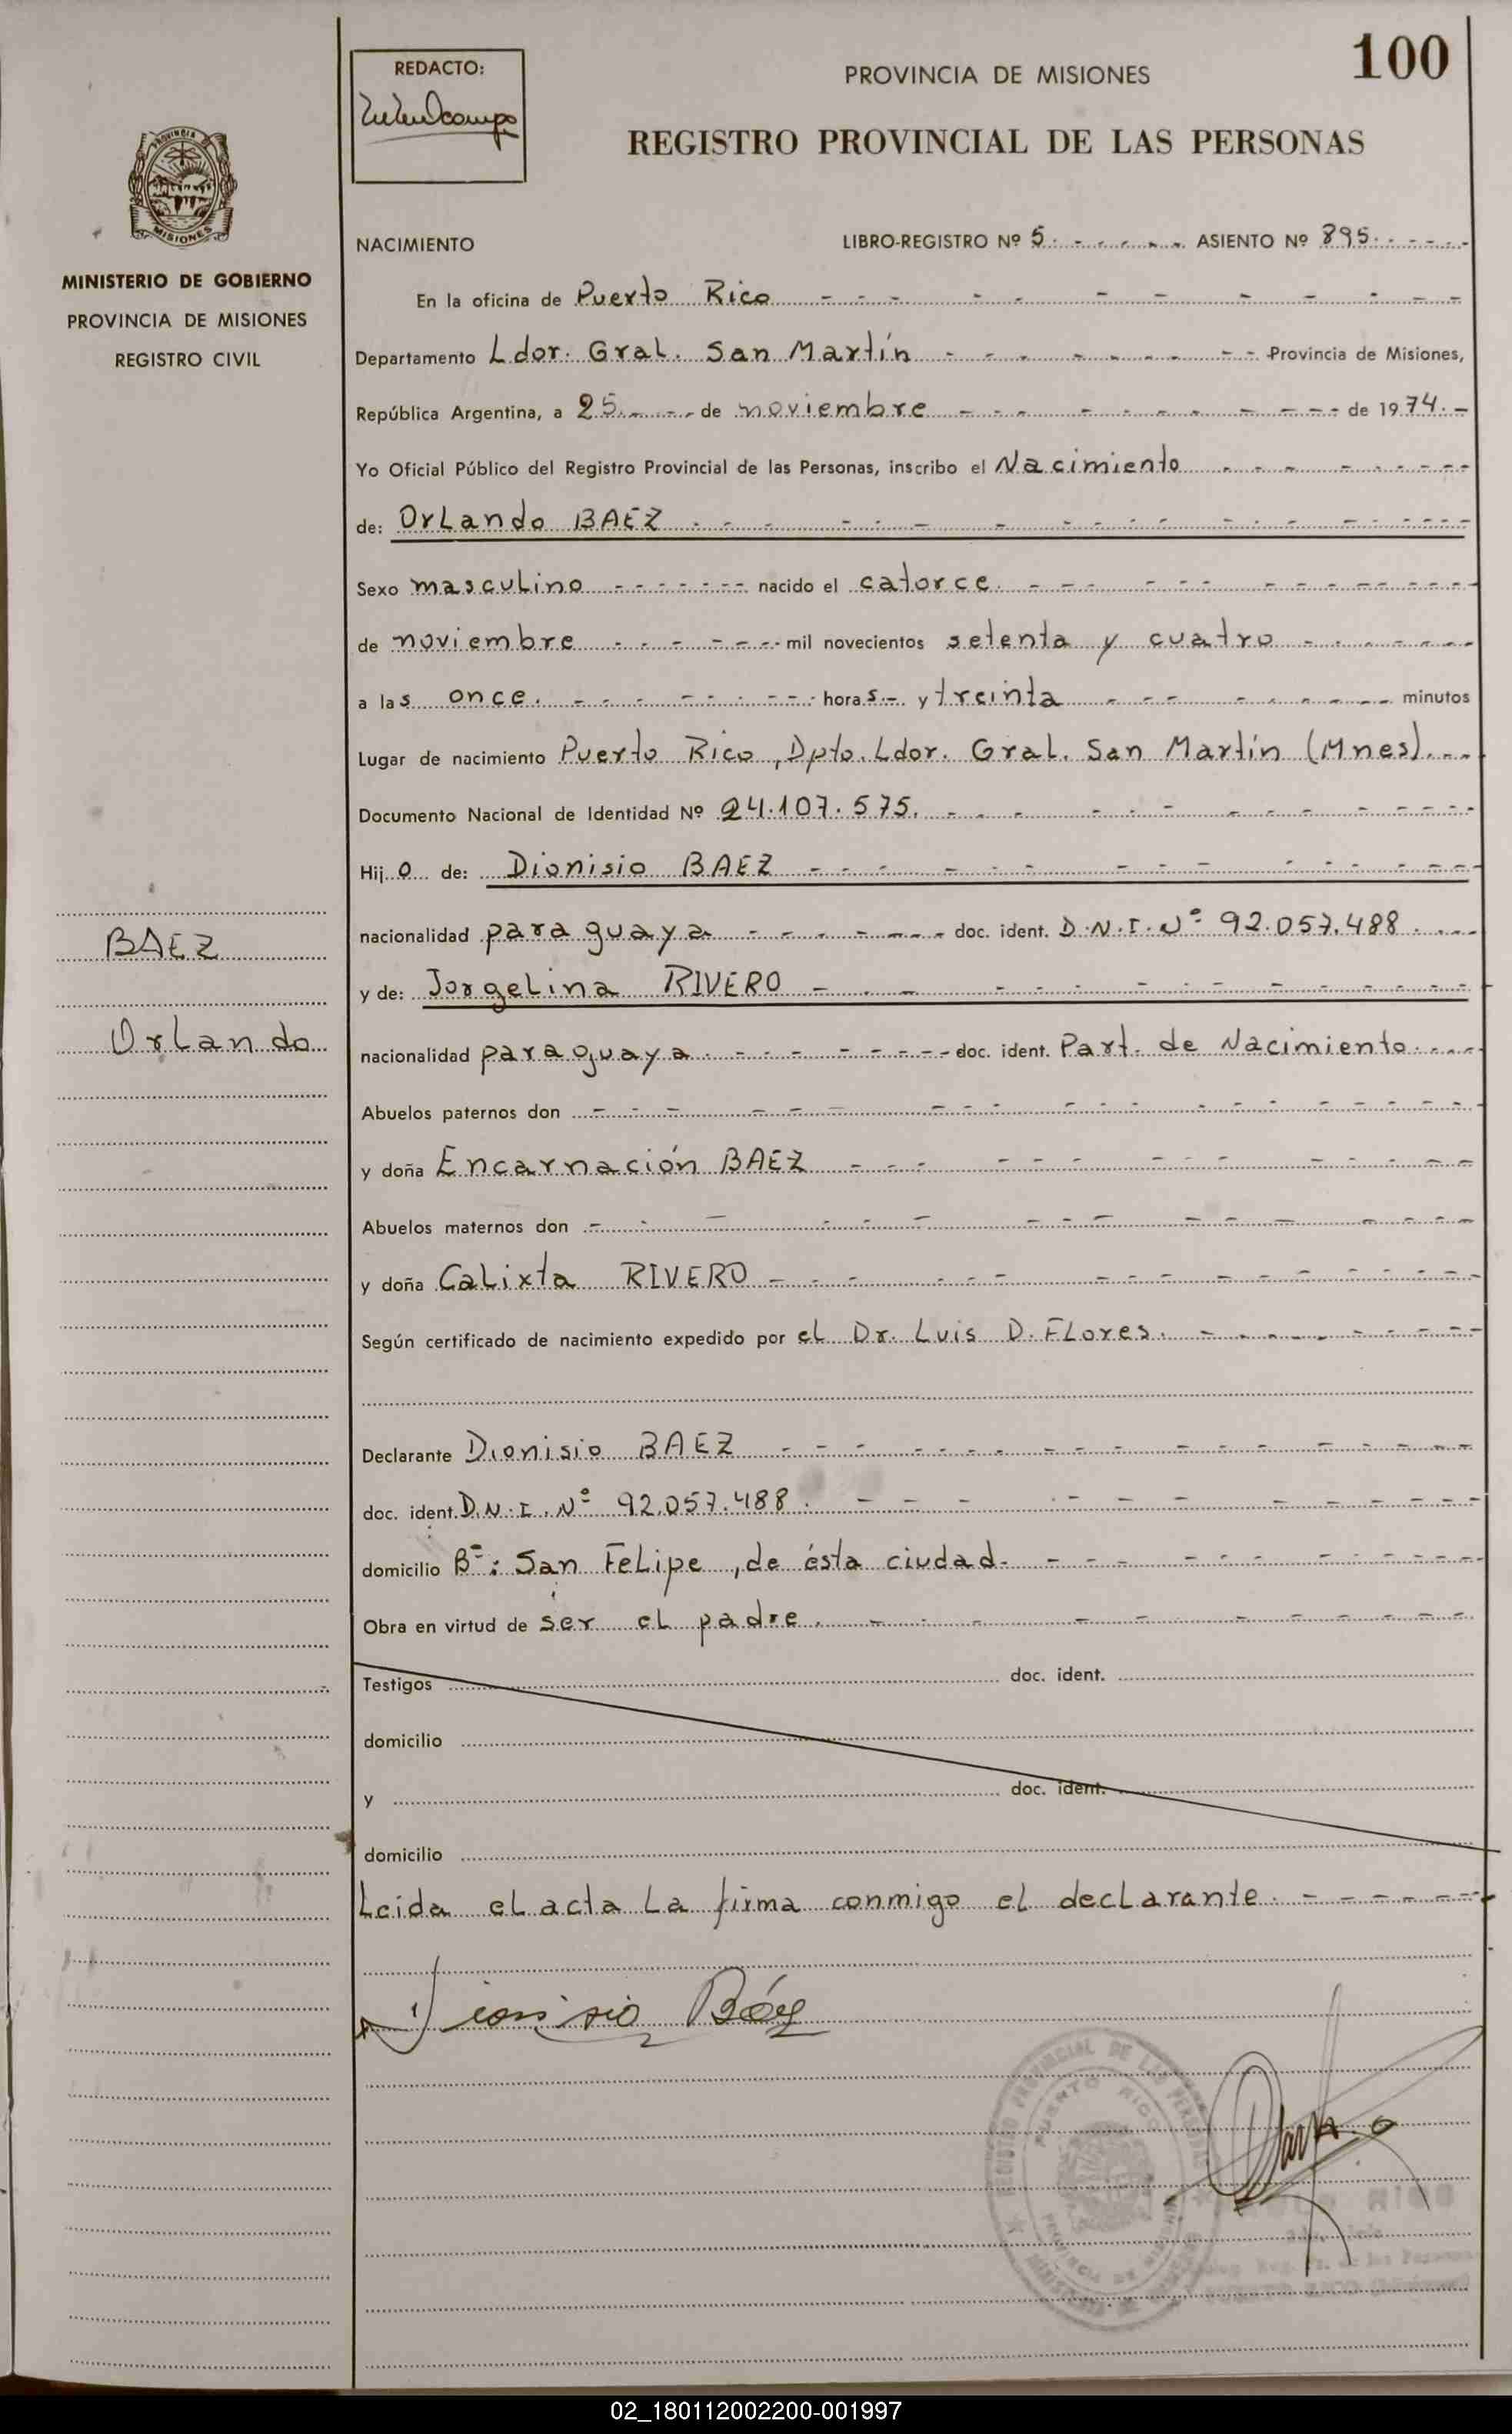 REDACTO:
PROVINCIA DE MISIONES
100
REGISTRO PROVINCIAL DE LAS PERSONAS
MISIONES
MINISTERIO DE GOBIERNO
PROVINCIA DE MISIONES
REGISTRO CIVIL
NACIMIENTO LIBRO-REGISTRO Nº 5. ASIENTO Nº 895.
En la oficina de Puerto Rico
Departamento Ldor. Gral. San Martín Provincia de Misiones,
República Argentina, a 25 de noviembre de 1974.
Yo Oficial Público del Registro Provincial de las Personas, inscribo el Nacimiento
de: Orlando BAEZ
Sexo masculino nacido el catorce
de noviembre mil novecientos setenta y cuatro
a las once. horas y treinta minutos
Lugar de nacimiento Puerto Rico, Dpto. Ldor. Gral. San Martín (Mnes).
Documento Nacional de Identidad Nº 24.107.575.
Hijo de: Dionisio BAEZ
nacionalidad paraguaya doc. ident. D.N.I. Nº 92.057.488.
y de: Jorgelina RIVERO
nacionalidad paraguaya. doc. ident. Part. de Nacimiento.
Abuelos paternos don
y doña Encarnación BAEZ
Abuelos maternos don
y doña Calixta RIVERO
Según certificado de nacimiento expedido por el Dr. Luis D. Flores.
Declarante Dionisio BAEZ
doc. ident. D.N.I. Nº 92.057.488.
domicilio Bº: San Felipe, de ésta ciudad.
Obra en virtud de ser el padre.
Testigos doc. ident.
domicilio
y doc. ident.
domicilio
Leida el acta la firma conmigo el declarante.
BAEZ
Orlando
Dionisio Báez
REGISTRO PROVINCIAL DE LAS PERSONAS
PUERTO RICO
PROVINCIA DE MISIONES
02_180112002200-001997